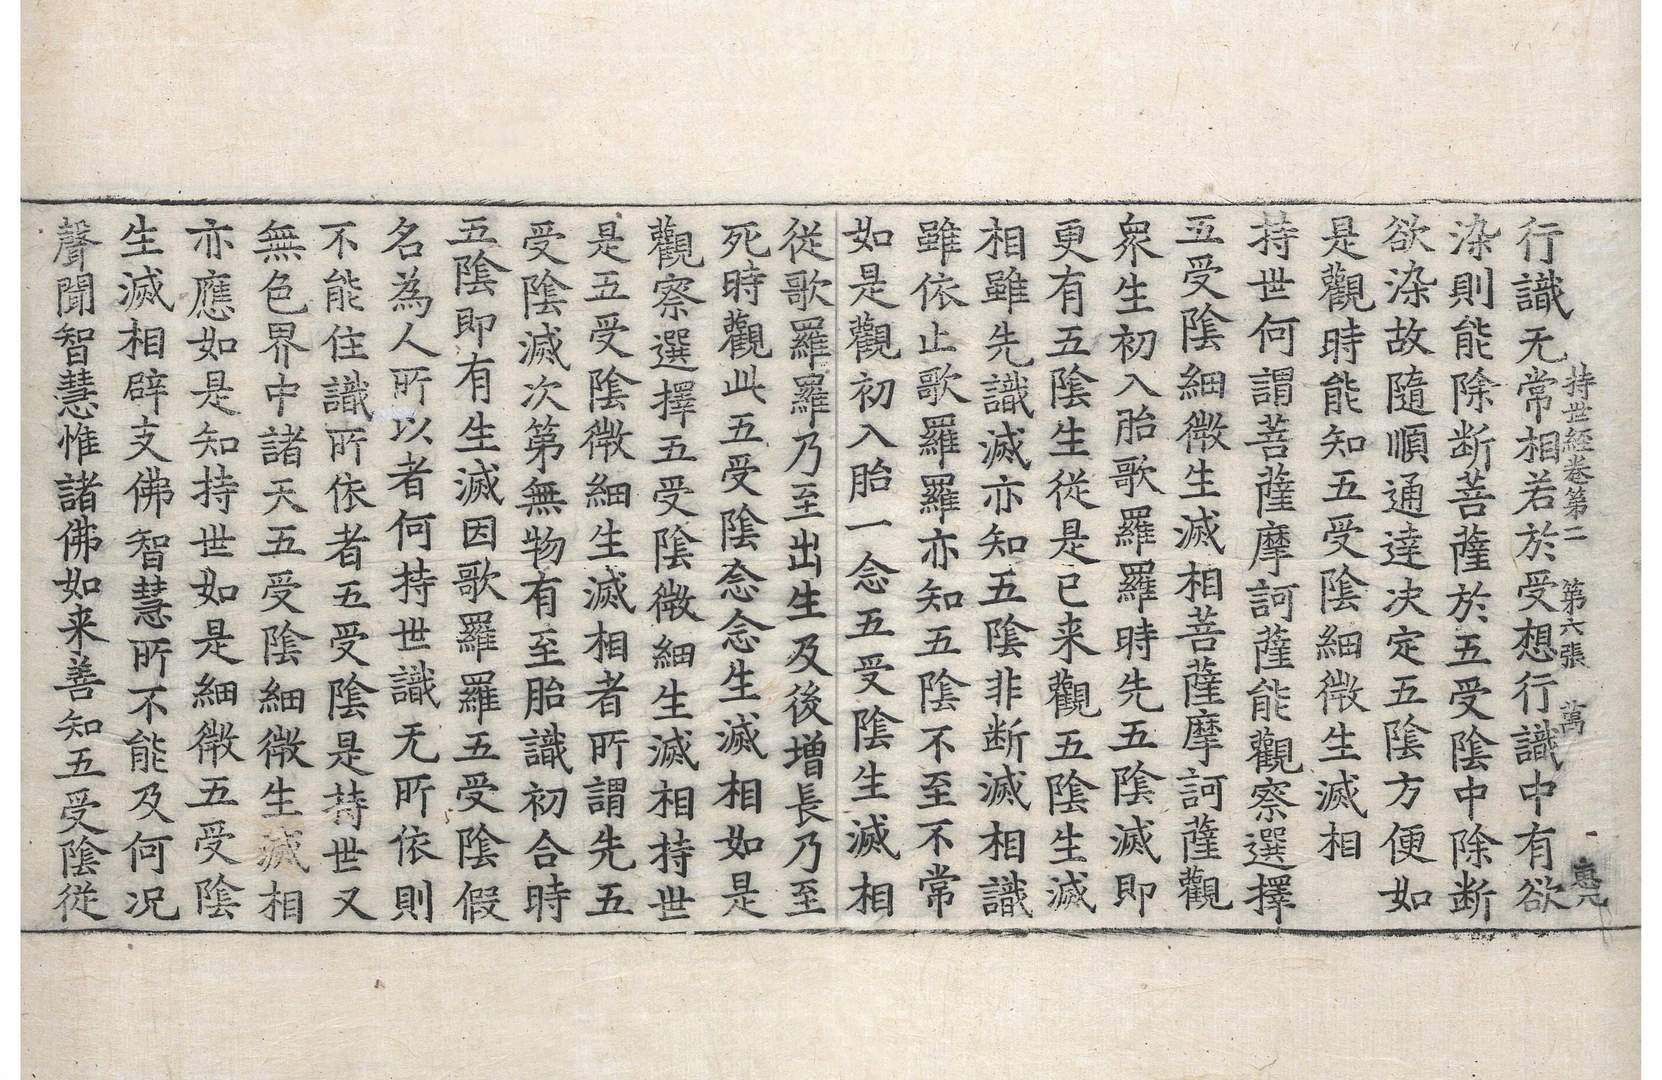 持世經卷第二 第六張 萬 惠元
行識无常相若於受想行識中有欲
染則能除断菩薩於五受陰中除断
欲染故隨順通達决定五陰方便如
是觀時能知五受陰細微生滅相
持世何謂菩薩摩訶薩能觀察選擇
五受陰細微生滅相菩薩摩訶薩觀
衆生初入胎歌羅羅時先五陰滅即
更有五陰生從是已来觀五陰生滅
相雖先識滅亦知五陰非断滅相識
雖依止歌羅羅亦知五陰不至不常
如是觀初入胎一念五受陰生滅相
從歌羅羅乃至出生及後增長乃至
死時觀此五受陰念念生滅相如是
觀察選擇五受陰微細生滅相持世
是五受陰微細生滅相者所謂先五
受陰滅次第無物有至胎識初合時
五陰即有生滅因歌羅羅五受陰假
名為人所以者何持世識无所依則
不能住識所依者五受陰是持世又
無色界中諸天五受陰細微生滅相
亦應如是知持世如是細微五受陰
生滅相辟支佛智慧所不能及何況
聲聞智慧惟諸佛如来善知五受陰從